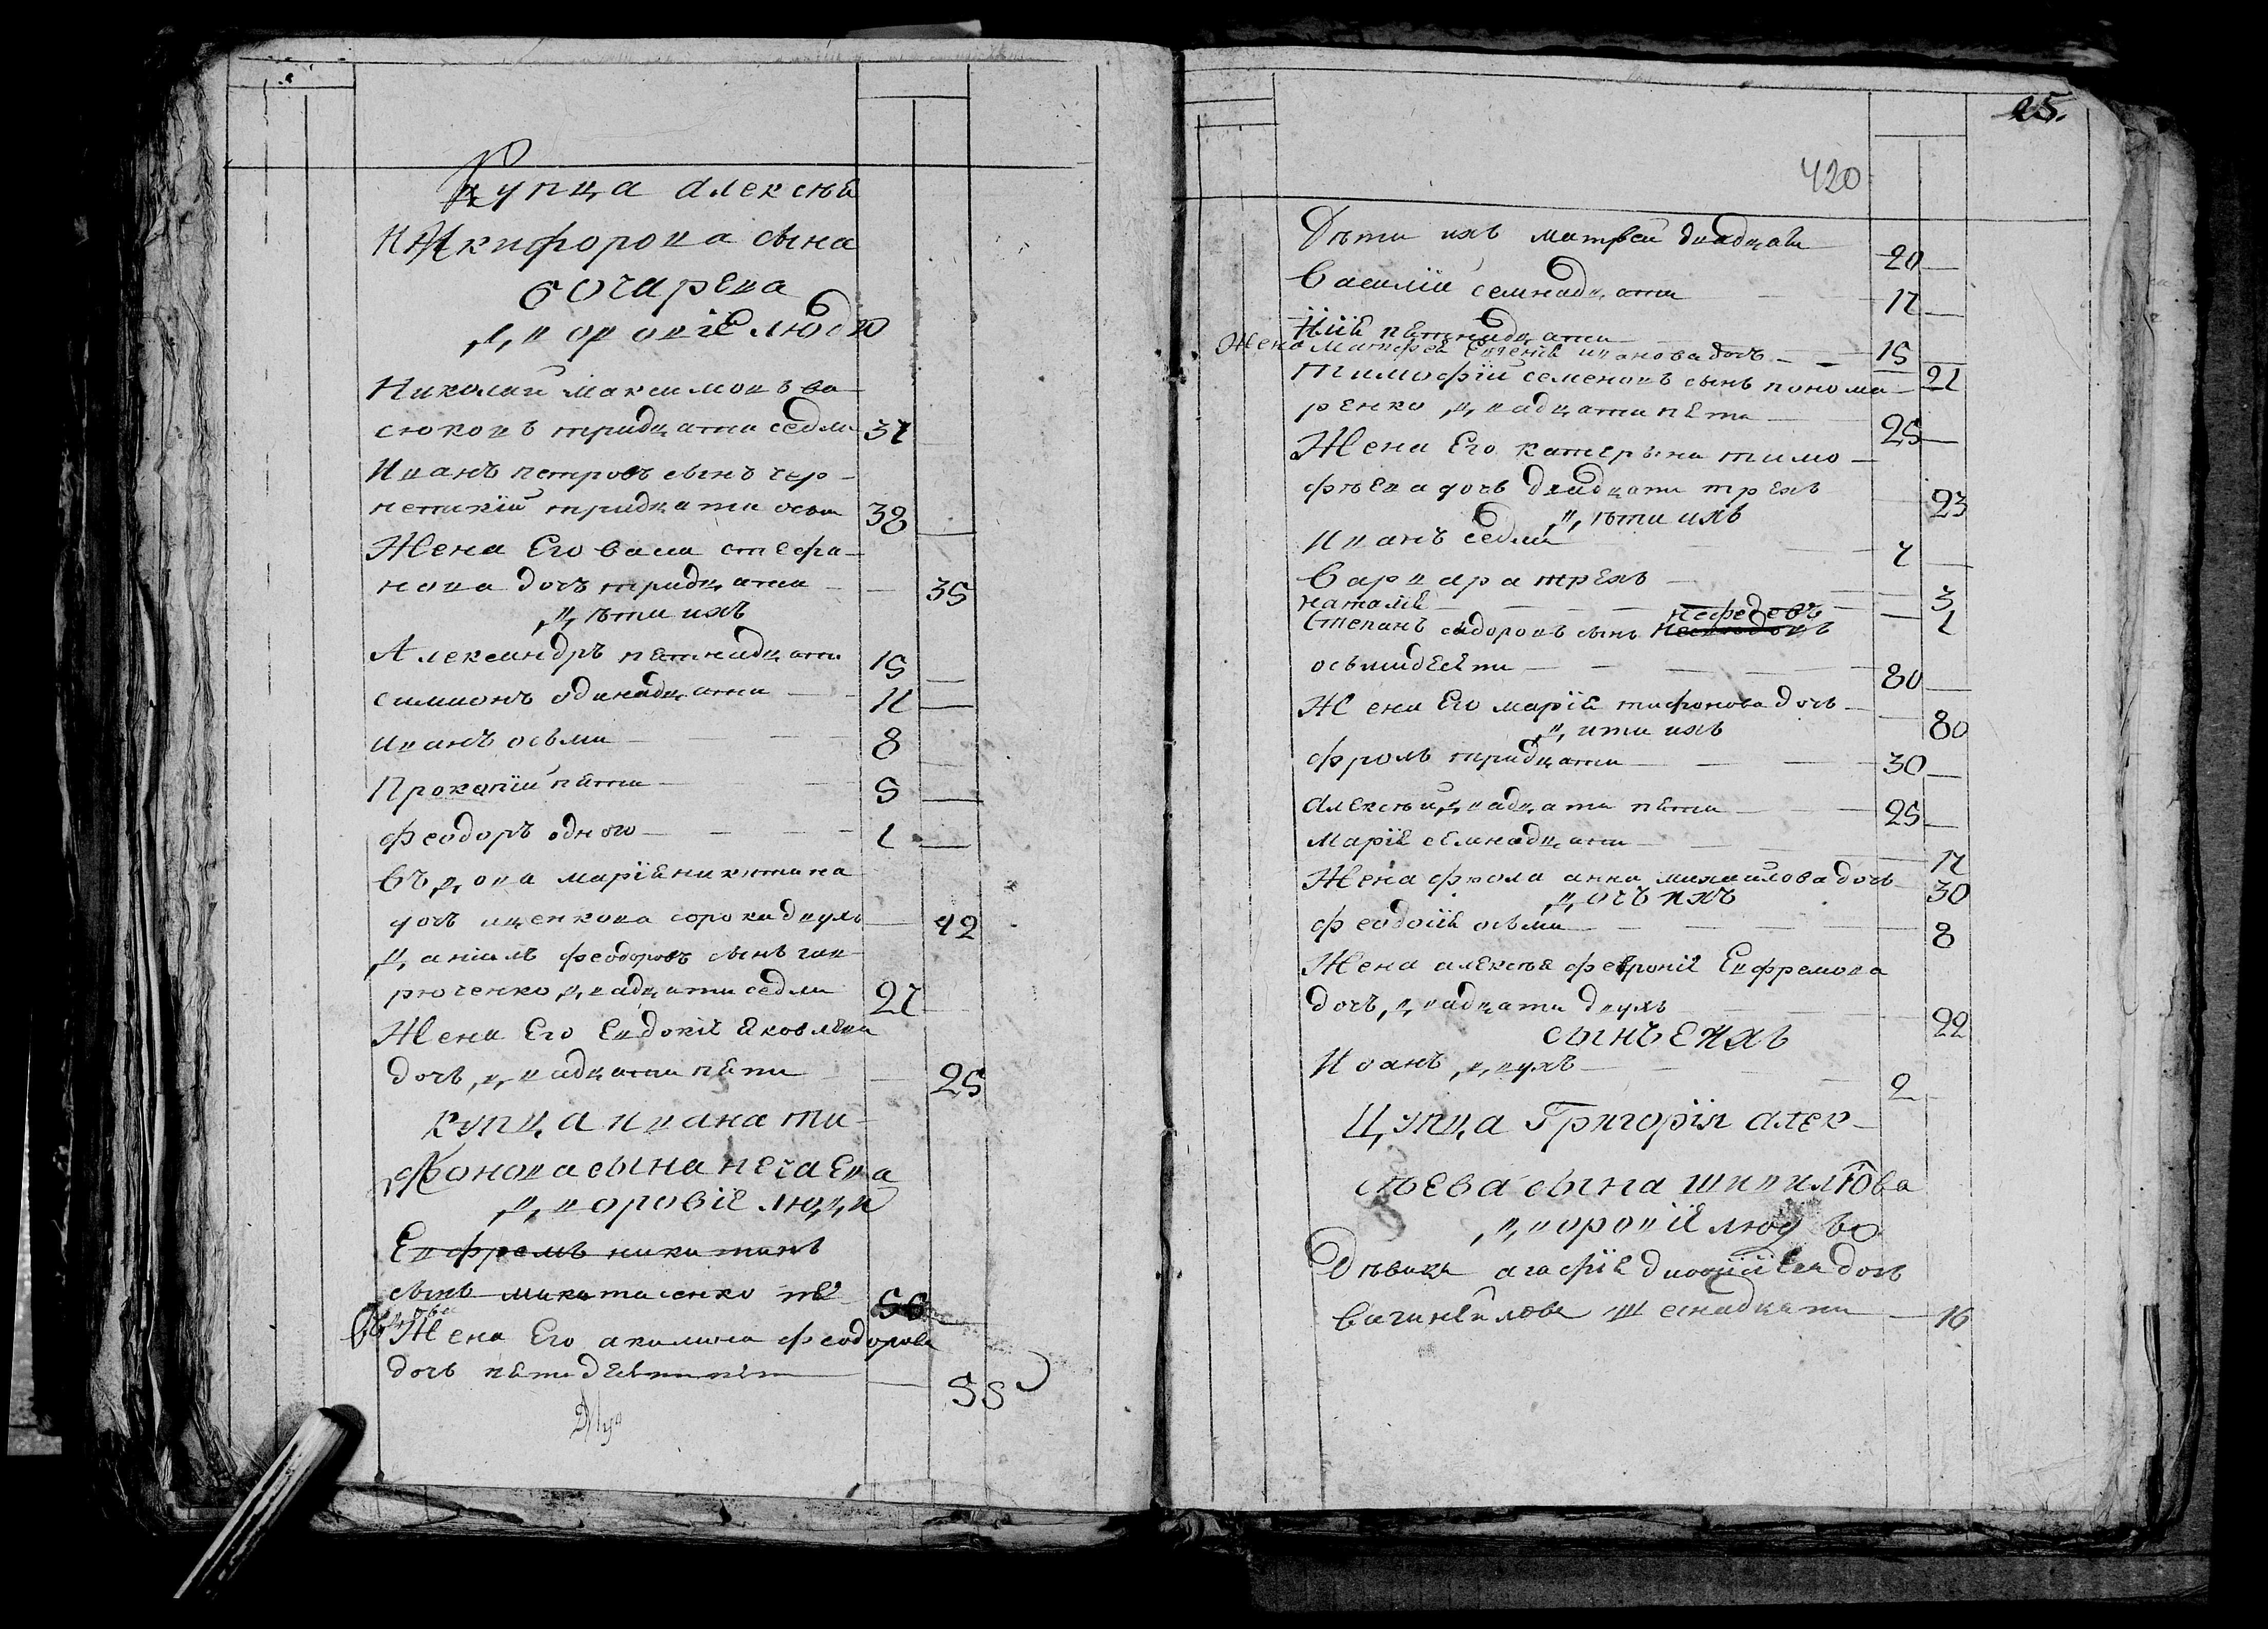 Купца Алексѣя
Никифорова сына
бочарева
дворовіе люди
Николай максимовъ ва
сюковъ тридцати седми 37
Иванъ петровъ сынъ чер-
нетикій тридцати осми 38
Жена Его васа стефа-
нова дочъ тридцати 35
дѣти ихъ
Александръ пятнадцати 15
симионъ одинадцати 11
иванъ осьми 8
Прокопій пяти 5
феодоръ одного 1
въдова марія никитина
дочъ ищенкова сорокидвухъ 42
даніилъ феодоровъ сынъ гав-
рюченко двадцати седми 27
Жена Его Евдокія яковлева
дочъ двадцати пяти 25
купца ивана ти-
фонова сына нечаева
дворовіе люди
Евфремъ никитинъ
сынъ микитасенко 56
въдова
Жена Его акилина феодорова
дочъ пятидесятипяти 55
25.
420
Дѣти ихъ матвеи двадцати 20
Василій семнадцати 17
Илія пятнадцати 15
Жена Матфея Евгенія иванова дочъ 21
Тимофій семеновъ сынъ понома-
ренко двадцати пяти 25
Жена Его катерына тимо-
фѣева дочъ двадцати трехъ 23
дѣти ихъ
Иванъ седми 7
Варвара трехъ 3
наталія 1
нефедевъ
Степанъ сидоровъ сынъ
осьмидесяти 80
Жена Его марія тифонова дочъ 80
дѣти ихъ
фролъ тридцати 30
Алексѣй двадцати пяти 25
Марія семнадцати 17
Жена фрола анна михаилова дочъ 30
дочъ ихъ
феодосія осьми 8
Жена алексѣя феврония Евфремова
дочъ двадцати двухъ 22
сынъ ехъ
Иванъ двухъ 2
Купца Григорія алек-
сѣева сына шипилова
дворовіе люди
Дѣвица агафія дионісіева дочъ
шеснадцати 16